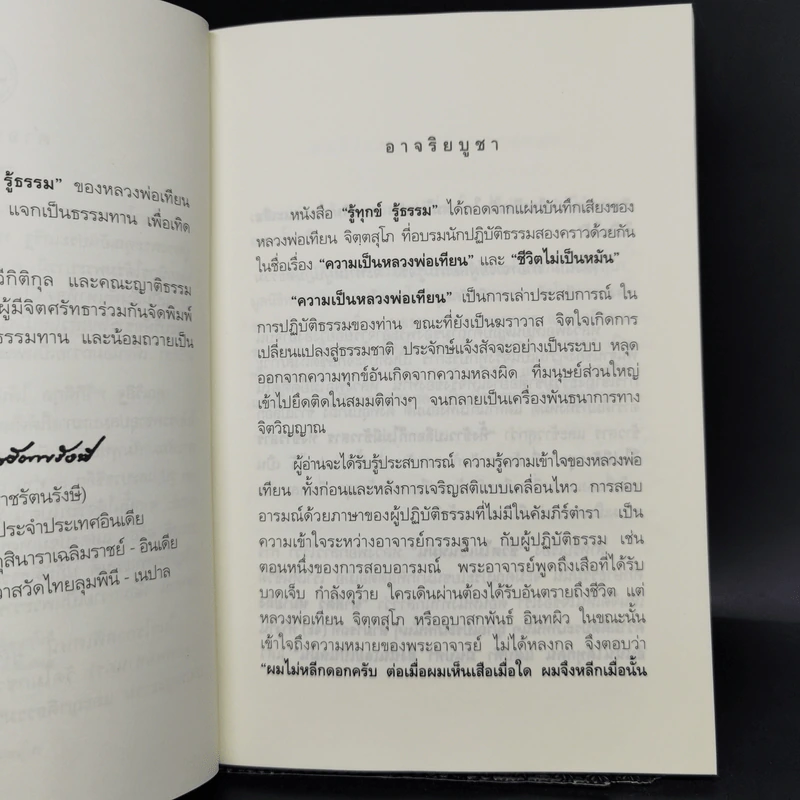 รู้ธรรม” ของหลวงพ่อเทียน
แจกเป็นธรรมทาน เพื่อเทิด
วีกิติกุล และคณะญาติธรรม
ผู้มีจิตศรัทธาร่วมกันจัดพิมพ์
ธรรมทาน และน้อมถวายเป็น
าชรัตนรังษี)
ประจำประเทศอินเดีย
กุสินาราเฉลิมราชย์ - อินเดีย
าสวัดไทยลุมพินี - เนปาล
อาจริยบูชา
หนังสือ “รู้ทุกข์ รู้ธรรม” ได้ถอดจากแผ่นบันทึกเสียงของ
หลวงพ่อเทียน จิตฺตสุโภ ที่อบรมนักปฏิบัติธรรมสองคราวด้วยกัน
ในชื่อเรื่อง “ความเป็นหลวงพ่อเทียน” และ “ชีวิตไม่เป็นหมัน”
“ความเป็นหลวงพ่อเทียน” เป็นการเล่าประสบการณ์ ใน
การปฏิบัติธรรมของท่าน ขณะที่ยังเป็นฆราวาส จิตใจเกิดการ
เปลี่ยนแปลงสู่ธรรมชาติ ประจักษ์แจ้งสัจจะอย่างเป็นระบบ หลุด
ออกจากความทุกข์อันเกิดจากความหลงผิด ที่มนุษย์ส่วนใหญ่
เข้าไปยึดติดในสมมติต่างๆ จนกลายเป็นเครื่องพันธนาการทาง
จิตวิญญาณ
ผู้อ่านจะได้รับรู้ประสบการณ์ ความรู้ความเข้าใจของหลวงพ่อ
เทียน ทั้งก่อนและหลังการเจริญสติแบบเคลื่อนไหว การสอบ
อารมณ์ด้วยภาษาของผู้ปฏิบัติธรรมที่ไม่มีในคัมภีร์ตำรา เป็น
ความเข้าใจระหว่างอาจารย์กรรมฐาน กับผู้ปฏิบัติธรรม เช่น
ตอนหนึ่งของการสอบอารมณ์ พระอาจารย์พูดถึงเสือที่ได้รับ
บาดเจ็บ กำลังดุร้าย ใครเดินผ่านต้องได้รับอันตรายถึงชีวิต แต่
หลวงพ่อเทียน จิตฺตสุโภ หรืออุบาสกพันธ์ อินทผิว ในขณะนั้น
เข้าใจถึงความหมายของพระอาจารย์ ไม่ได้หลงกล จึงตอบว่า
“ผมไม่หลีกดอกครับ ต่อเมื่อผมเห็นเสือเมื่อใด ผมจึงหลีกเมื่อนั้น